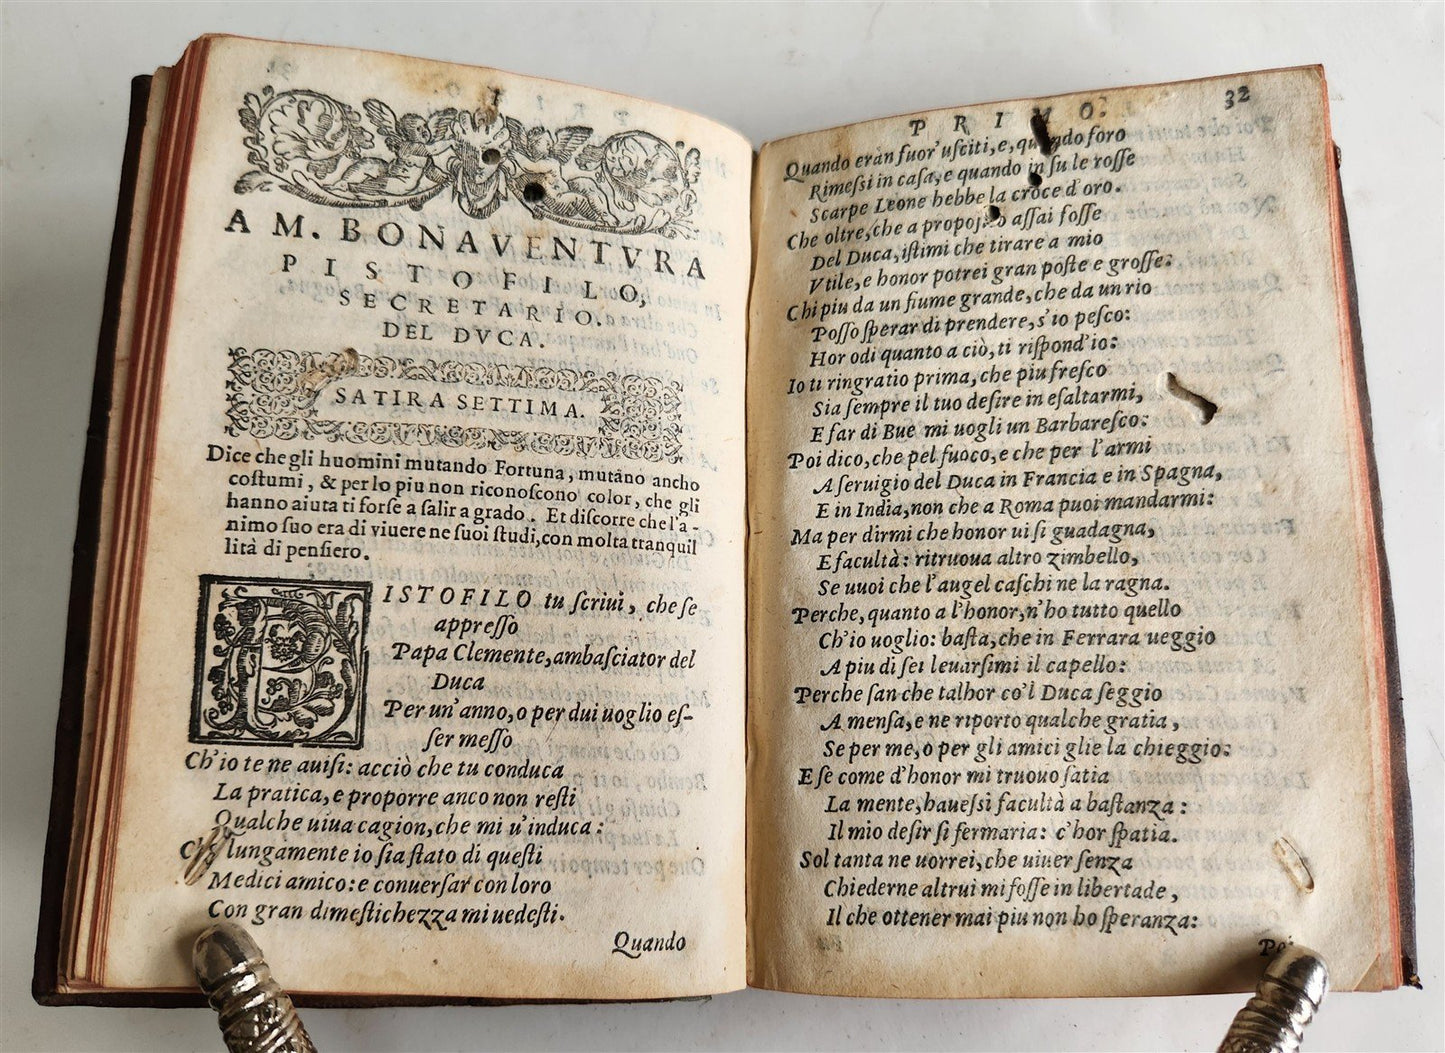 A M. BONAVENTVRA
PISTOFILO,
SECRETARIO.
DEL DVCA.
SATIRA SETTIMA.
Dice che gli huomini mutando Fortuna, mutano ancho
costumi, & per lo piu non riconoscono color, che gli
hanno aiuta ti forse a salir a grado. Et discorre che l'a-
nimo suo era di viuere ne suoi studi, con molta tranquil
lità di pensiero.
PISTOFILO tu scriui, che se
appresso
Papa Clemente, ambasciator del
Duca
Per un'anno, o per dui uoglio es-
ser messo
Ch'io te ne auisi: acciò che tu conduca
La pratica, e proporre anco non resti
Qualche uiua cagion, che mi u'induca:
lungamente io sia stato di questi
Medici amico: e conuersar con loro
Con gran dimestichezza mi uedesti.
Quando
PRIMO. 32
Quando eran fuor'usciti, e, quando foro
Rimessi in casa, e quando in su le rosse
Scarpe Leone hebbe la croce d'oro.
Che oltre, che a proposito assai fosse
Del Duca, istimi che tirare a mio
Vtile, e honor potrei gran poste e grosse:
Chi piu da un fiume grande, che da un rio
Posso sperar di prendere, s'io pesco:
Hor odi quanto a ciò, ti rispond'io:
Io ti ringratio prima, che piu fresco
Sia sempre il tuo desire in esaltarmi,
E far di Bue mi uogli un Barbaresco:
Poi dico, che pel fuoco, e che per l'armi
A seruigio del Duca in Francia e in Spagna,
E in India, non che a Roma puoi mandarmi:
Ma per dirmi che honor ui si guadagna,
E facultà: ritruoua altro zimbello,
Se uuoi che l'augel caschi ne la ragna.
Perche, quanto a l'honor, n'ho tutto quello
Ch'io uoglio: basta, che in Ferrara ueggio
A piu di sei leuarsimi il capello:
Perche san che talhor co'l Duca seggio
A mensa, e ne riporto qualche gratia,
Se per me, o per gli amici glie la chieggio:
E se come d'honor mi truouo satia
La mente, hauessi facultà a bastanza:
Il mio desir si fermaria: c'hor spatia.
Sol tanta ne uorrei, che uiuer senza
Chiederne altrui mi fosse in libertade,
Il che ottener mai piu non ho speranza: